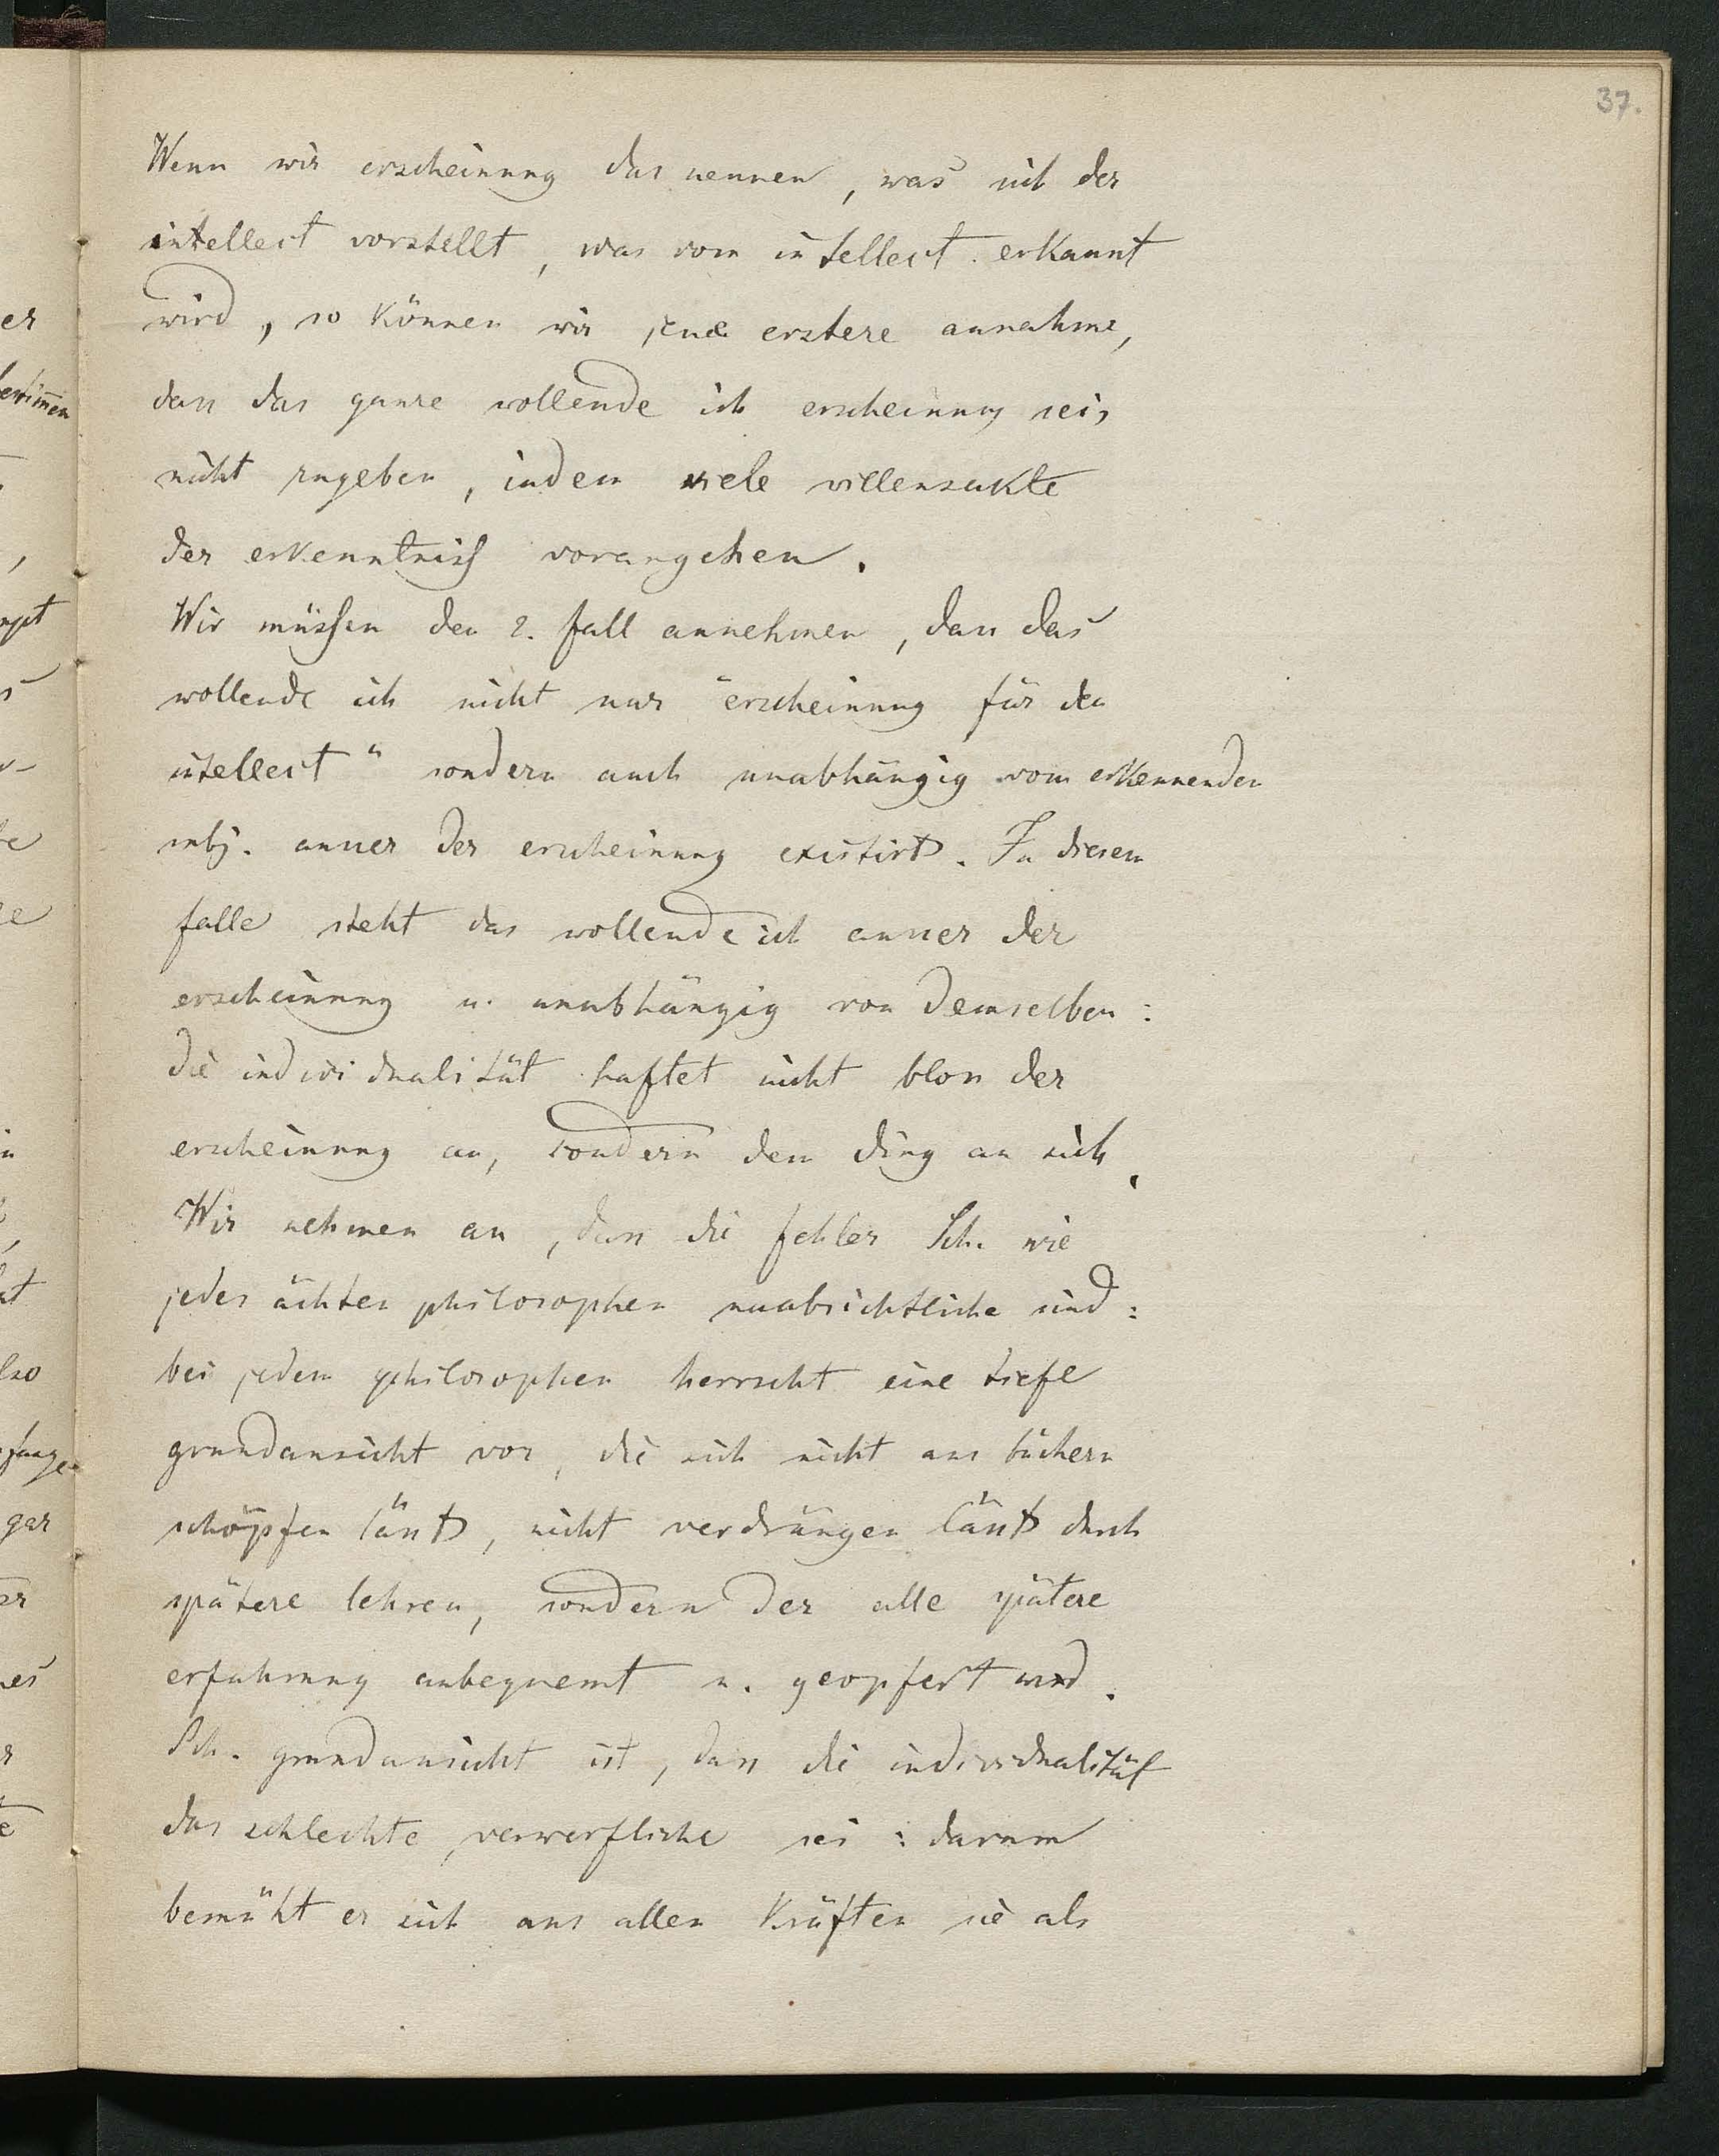 37.
Wenn wir erscheinung das nennen, was sich der
intellect vorstellt, was vom intellect erkannt
wird, so können wir jene erstere annahme,
dass das ganze wollende ich erscheinung sei,
nicht zugeben, indem viele willensakte
der erkenntniss vorangehen.
Wir müssen den 2. fall annehmen, dass das
wollende ich nicht nur "erscheinung für den
intellect" sondern auch unabhängig vom erkennenden
subj. ausser der erscheinung existirt. In diesem
falle steht das wollende ich ausser der
erscheinung u. unabhängig von demselben:
die individualität haftet nicht bloss der
erscheinung an, sondern dem ding an sich.
Wir nehmen an, dass die fehler Sch. wie
jedes ächten philosophen unabsichtliche sind:
bei jedem philosophen herrscht eine tiefe
grundansicht vor, die sich nicht aus büchern
schöpfen lässt, nicht verdrängen lässt durch
spätere lehren, sondern der alle spätere
erfahrung anbequemt u. geopfert wird.
Sch. grundansicht ist, dass die individualität
das schlechte, verwerfliche sei: darum
bemüht er sich aus allen Kräften sie als
er
bestimmen
gar